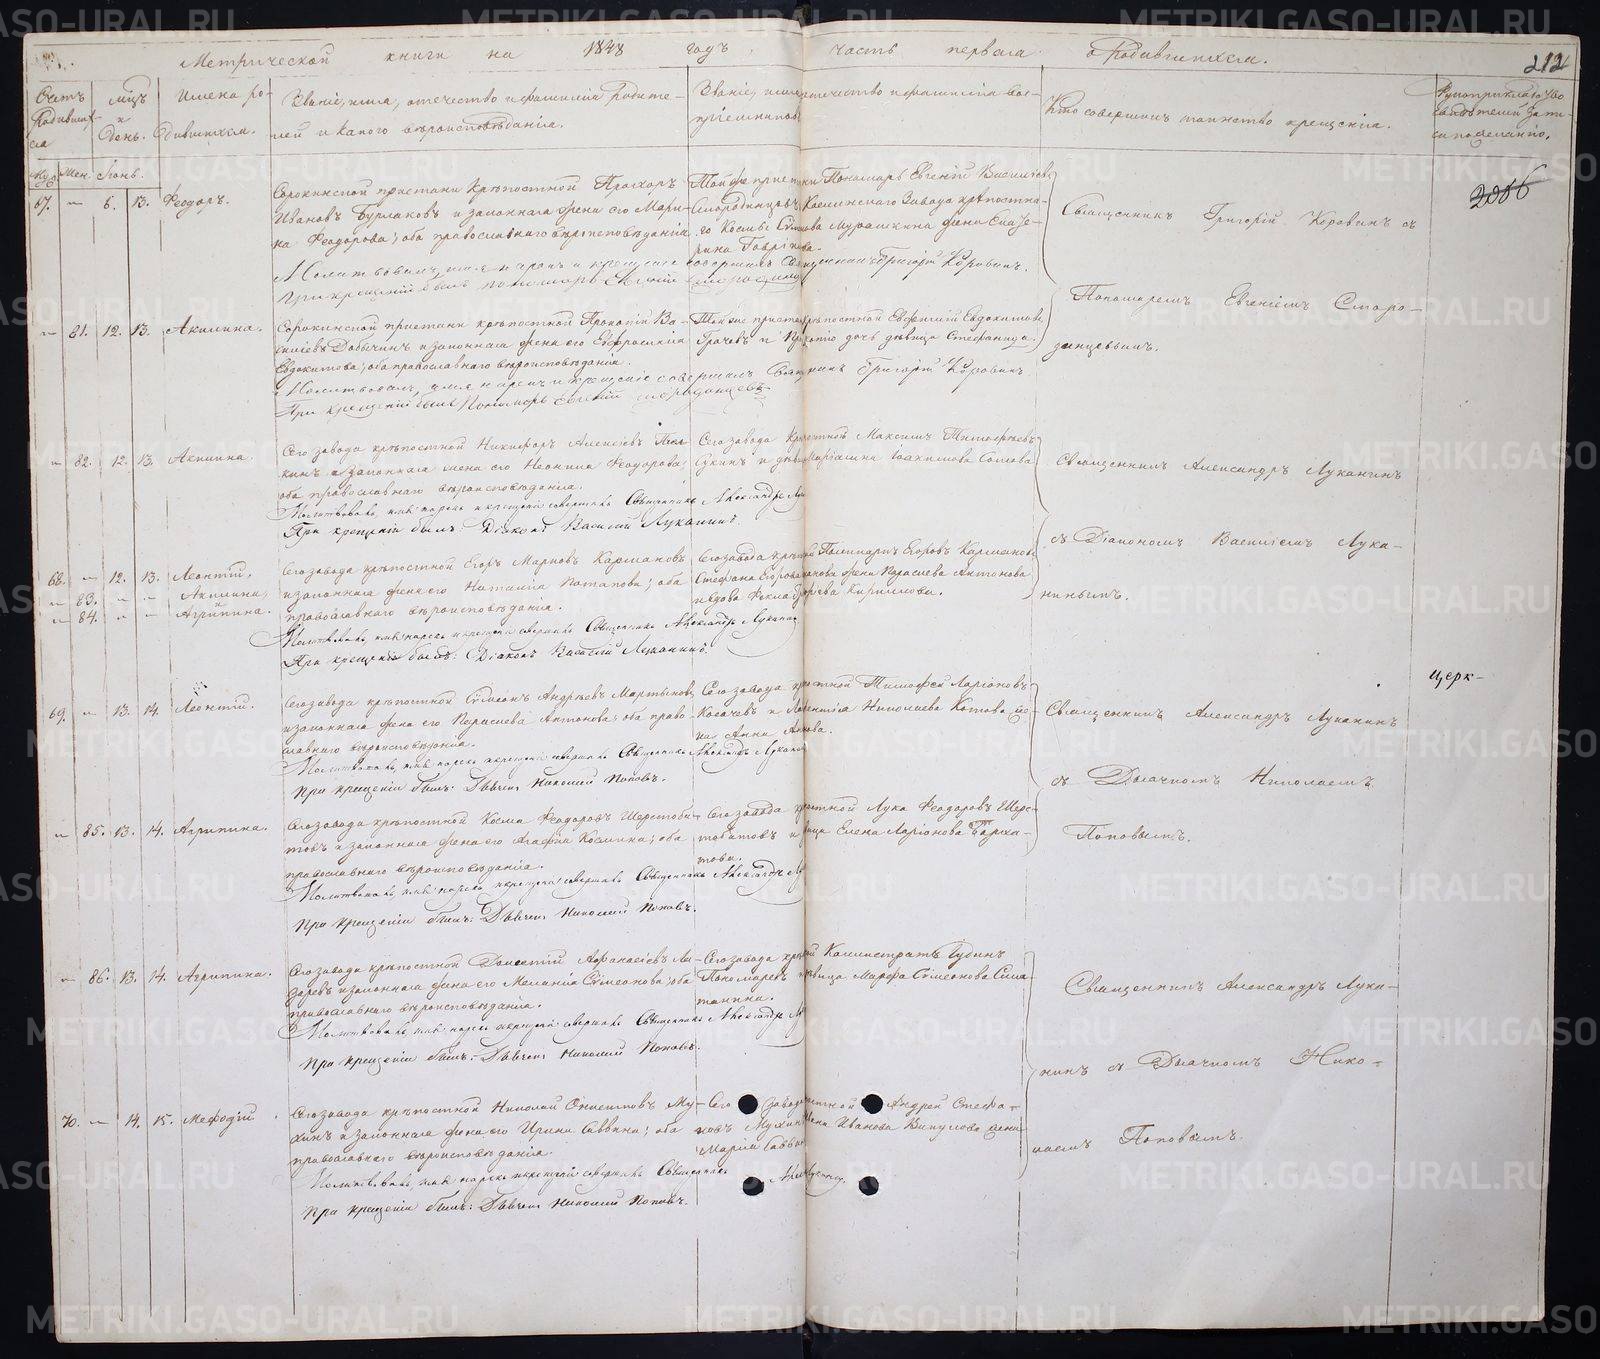 Метрической книги на 1848 годъ, часть первая о родившихся.
212
Счетъ родившихся
мѣцъ и день.
Имена родившихся.
Званіе, имя, отечество и фамилія родите-
лей и какого вѣроисповѣданія.
Званіе, имя, отечество и фамилія вос-
пріемниковъ
Кто совершилъ таинство крещенія.
Рукоприкладство
свидѣтелей запи-
си по желанію.
Муж. Жен. Іюнь.
2006
67. — 6. 13. Феодоръ.
Сорокинской пристани крѣпостной Прохоръ
Ивановъ Бурмаковъ и законная жена его Мари-
на Феодорова; оба православнаго вѣроисповѣданія
Той же пристани Пономарь Евгеній Василіевъ
Смородинцевъ, Каслинскаго Завода крѣпостна-
го Космы Мурашкина жена Екате-
рина Гаврілова.
Молитвовалъ, имя нарекъ и крещеніе совершилъ Священникъ Григорій Коровинъ.
При крещеніи былъ Пономарь Евгеній Смородинцевъ
Священникъ Григорій Коровинъ съ
Пономаремъ Евгеніемъ Сморо-
динцевымъ.
— 81. 12. 13. Акилина.
Сорокинской пристани крѣпостной Прокопій Ва-
силіевъ Добычинъ и законная жена его Евфросинія
Евдокимова; оба православнаго вѣроисповѣданія.
Той же пристани крѣпостной Евфимій Евдокимовъ
Грачевъ и дочь дѣвица Стефанида.
Молитвовалъ, имя нарекъ и крещеніе совершилъ Священникъ Григорій Коровинъ.
При крещеніи былъ Пономарь Евгеній Смородинцевъ
— 82. 12. 13. Акилина.
Сего завода крѣпостной Никифоръ Алексіевъ
кинъ и законная жена его Неонила Феодорова;
оба православнаго вѣроисповѣданія.
Сего завода крѣпостной Максимъ Тимофѣевъ
Сукинъ и Іоакимова
Молитвовалъ, имя нарекъ и крещеніе совершилъ Священникъ Александръ Лу
При крещеніи былъ: Діаконъ Василій Луканинъ.
Священникъ Александръ Луканинъ
съ Діакономъ Василіемъ Лука-
нинымъ.
68. — 12. 13. Леонтій,
— 83. — — Акилина,
— 84. — — и Агрипина.
Сего завода крѣпостной Егоръ Марковъ Кармановъ
и законная жена его Наталія Потапова; оба
православнаго вѣроисповѣданія.
Сего завода крѣпостной Егоровъ Кармановъ
Стефана жена Параскева Антонова
и вдова Фекла Кирилова.
Молитвовалъ, имя нарекъ и крещеніе совершилъ Священникъ Александръ Луканинъ
При крещеніи былъ: Діаконъ Василій Луканинъ.
69. — 13. 14. Леонтій.
Сего завода крѣпостной Сѵмеонъ Андрѣевъ Мартыновъ
и законная жена его Параскева Антонова; оба право-
славнаго вѣроисповѣданія.
Сего завода крѣпостной Тимофей Ларіоновъ
Косачевъ и Николаева Котова же-
на Анна
Молитвовалъ, имя нарекъ и крещеніе совершилъ Священникъ Александръ Луканинъ
При крещеніи былъ: Дьячекъ Николай Поповъ.
Священникъ Александръ Луканинъ
съ Дьячкомъ Николаемъ
Поповымъ.
церк-
— 85. 13. 14. Агрипина.
Сего завода крѣпостной Косма Феодоровъ Шерстоби-
товъ и законная жена его Агафія Космина; оба
православнаго вѣроисповѣданія.
Сего завода крѣпостной Лука Феодоровъ Шерс-
тобитовъ и Елена Ларіонова
това.
Молитвовалъ, имя нарекъ и крещеніе совершилъ Священникъ Александръ Лу
При крещеніи былъ: Дьячекъ Николай Поповъ.
— 86. 13. 14. Агрипина.
Сего завода крѣпостной Афанасіевъ Ла-
заревъ и законная жена его Меланія Сѵмеонова; оба
православнаго вѣроисповѣданія.
Сего завода Калистратъ
Пономаревъ дѣвица Марфа Сѵмеонова
танина.
Молитвовалъ, имя нарекъ и крещеніе совершилъ Священникъ Александръ Лу
При крещеніи былъ: Дьячекъ Николай Поповъ.
Священникъ Александръ Лука-
нинъ съ Дьячкомъ Нико-
лаемъ Поповымъ.
70. — 14. 15. Мефодій.
Сего завода крѣпостной Николай Му-
хинъ и законная жена его Ирина Саввина; оба
православнаго вѣроисповѣданія.
Сего завода крѣпостной Андрей Стефа-
новъ Мухинъ Иванова Викулова жена
Марія Савви
Молитвовалъ, имя нарекъ и крещеніе совершилъ Священникъ
При крещеніи былъ: Дьячекъ Николай Поповъ.
METRIKI.GASO-URAL.RU